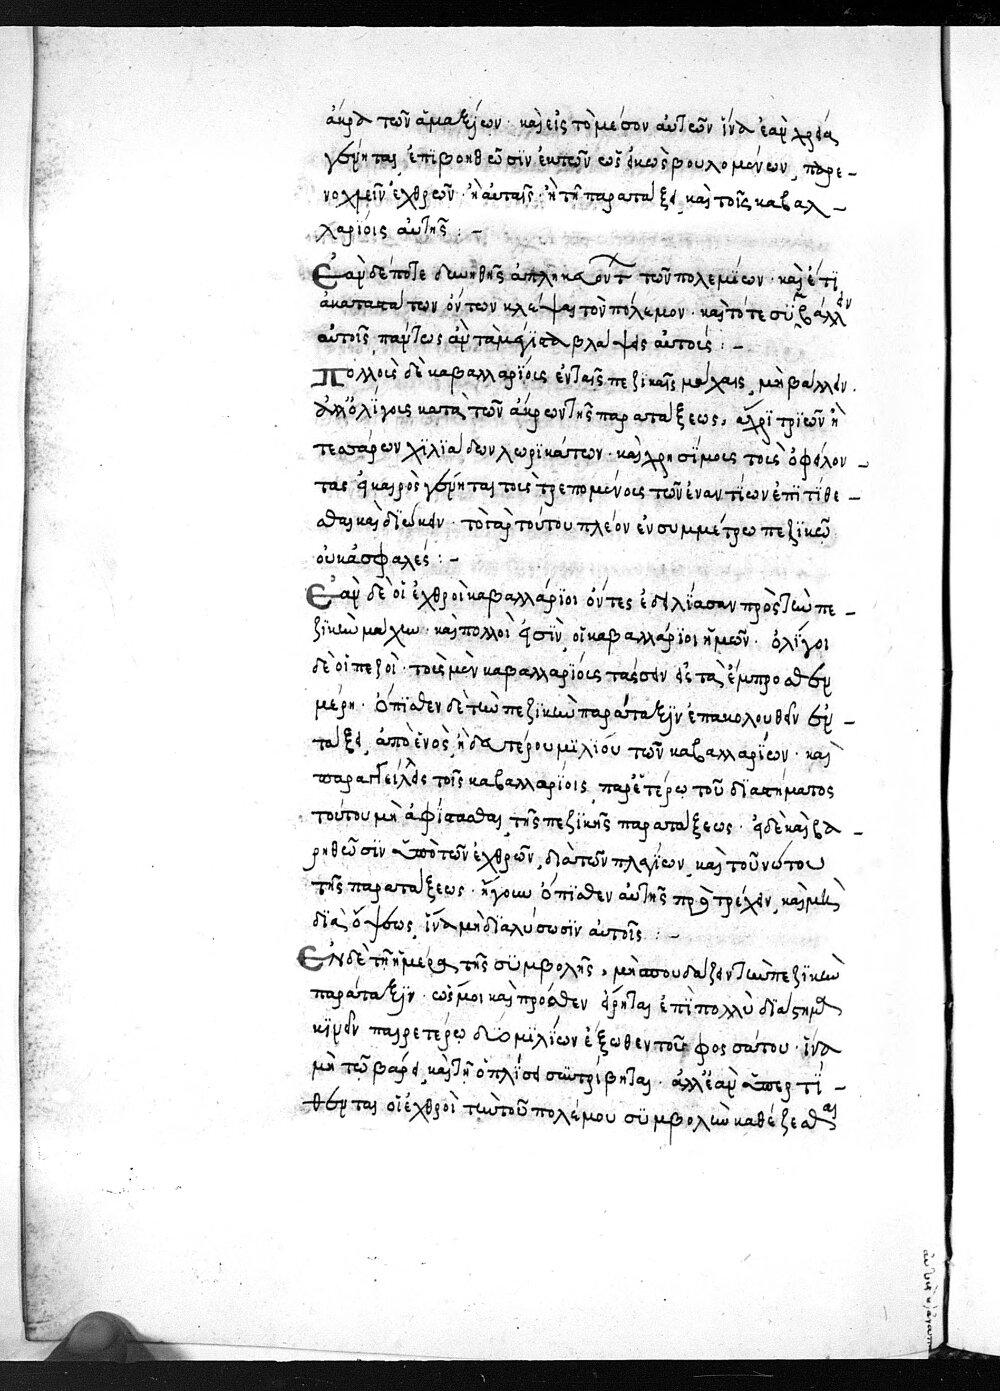 ἄκρα τῶν ἁμαξίων· καὶ εἰς τὸ μέσον αὐτῶν ἵνα ἐὰν χρεία
γένηται, ἐπιβοηθῶσϊν ἐκ τῶν
νοχλεῖν ἐχθρῶν· ἢ αὐταῖς· ἢ τῆ παρατάξει, καὶ τοῖς καβαλ-
λαρίοις αὐτῆς :-
Ἐὰν δέ ποτε δυνηθῆς ἀπλήκευοντ τῶν πολεμίων· καὶ ἔτι
ἀκαταστάτων ὄντων κλέψαι τὸν πόλεμον· καὶ τότε συμβάλλειν
αὐτοῖς, πάντως ἂν τὰ μέγιστα βλάψεις αὐτούς :-
Πολλοὺς δὲ καβαλλαρίους ἐν ταῖς πεζικαῖς μάχαις, μὴ βάλλειν·
ἀλλ' ὀλίγους κατὰ τῶν ἄκρων τῆς παρατάξεως, ἄχρι τριῶν ἢ
τεσσάρων χϊλϊάδων λωρϊκάτων· καὶ χρησίμους τοὺς ὀφείλον-
τας εἰ καιρὸς γένηται τοῖς τρεπομένοις τῶν ἐναντίων ἐπιτίθε-
σθαι καὶ διώκειν· τὸ γὰρ τούτου πλέον ἐν συμμέτρω πεζϊκῶ
οὐκ ἀσφαλές :-
Ἐὰν δὲ οἱ ἐχθροὶ καβαλλάριοι ὄντες ἐδειλίασαν πρὸς τὴν πε-
ζϊκὴν μάχην· καὶ πολλοὶ εἰσὶν, οἱ καβαλλάριοι ἡμῶν· ὀλίγοι
δὲ οἱ πεζοί· τοὺς μὲν καβαλλαρίους τάσσειν εἰς τὰ ἔμπροσθεν
μέρη· ὄπϊσθεν δὲ τὴν πεζϊκὴν παράταξϊν ἐπακολουθεῖν ἐν-
τάξει, ἀπὸ ἑνὸς, ἢ δευτέρου μιλίου τῶν καβαλλαρίων· καὶ
παραγγείλεις τοῖς καβαλλαρίοις, παρετέρω τοῦ διαστήματος
τούτου μὴ ἀφίστασθαι, τῆς πεζικῆς παρατάξεως· εἰ δὲ καὶ βα-
ρηθῶσϊν ὑπὸ τῶν ἐχθρῶν, διὰ τῶν πλαγίων, καὶ τοῦ νώτου
τῆς παρατάξεως· ἤγουν ὄπισθεν αὐτῆς προτρέχειν, καὶ μὴ
διὰ ὄψεως, ἵνα μὴ διαλύσωσϊν αὐτοῖς :-
Ἐν δὲ τῆ ἡμέρα, τῆς συμβολῆς, μὴ σπουδάζειν τὴν πεζϊκὴν
παράταξϊν· ὥς μοι καὶ πρόσθεν εἴρηται ἐπὶ πολλῦ διάστημα
κϊνεῖν παρετέρω δύο μϊλίων ἔξωθεν τοῦ φοσσάτου· ἵνα
μὴ τῶ βάρει, καὶ τῆ ὁπλίσει συντρίβηται· ἀλλ' ἐὰν ὑπερτί-
θενται οἱ ἐχθροὶ τὴν τοῦ πολέμου συμβολὴν καθέζεσθαι